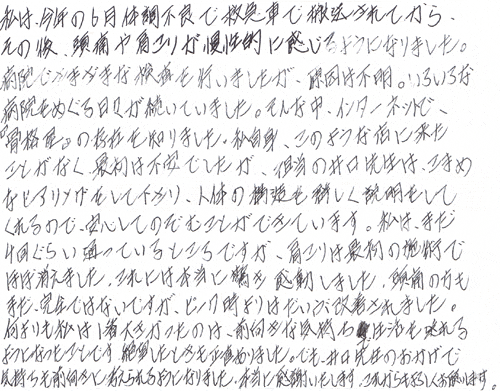 私は、今年の6月体調不良で救急車で搬送されてから、
その後、頭痛や肩こりが慢性的に感じるようになりました。
病院でさまざまな検査を行いましたが、原因は不明。いろいろな
病院をめぐる日々が続いていました。そんな中、インターネットで、
『骨格屋』の存在を知りました。私自身、このような店に来た
ことがなく最初は不安でしたが、担当の井口先生は、こまめ
なヒアリングをして下さり、人体の構造を詳しく説明をして
くれるので、安心してのぞむことができています。私は、まだ
4回ぐらい通っているところですが、肩こりは最初の施術で
ほぼ消えました。これには本当に驚き感動しました。頭痛の方も
まだ、完全ではないですが、ピーク時よりはだいぶ改善されました。
何よりも私は1番大きかったのは、前向きな気持ち 生活を送れる
ようになったことです。絶望したときも正直ありました。でも、井口先生のおかげで
気持ちも前向きに考えられるようになりました。本当に感謝いたします。これからも宜しくお願いします。